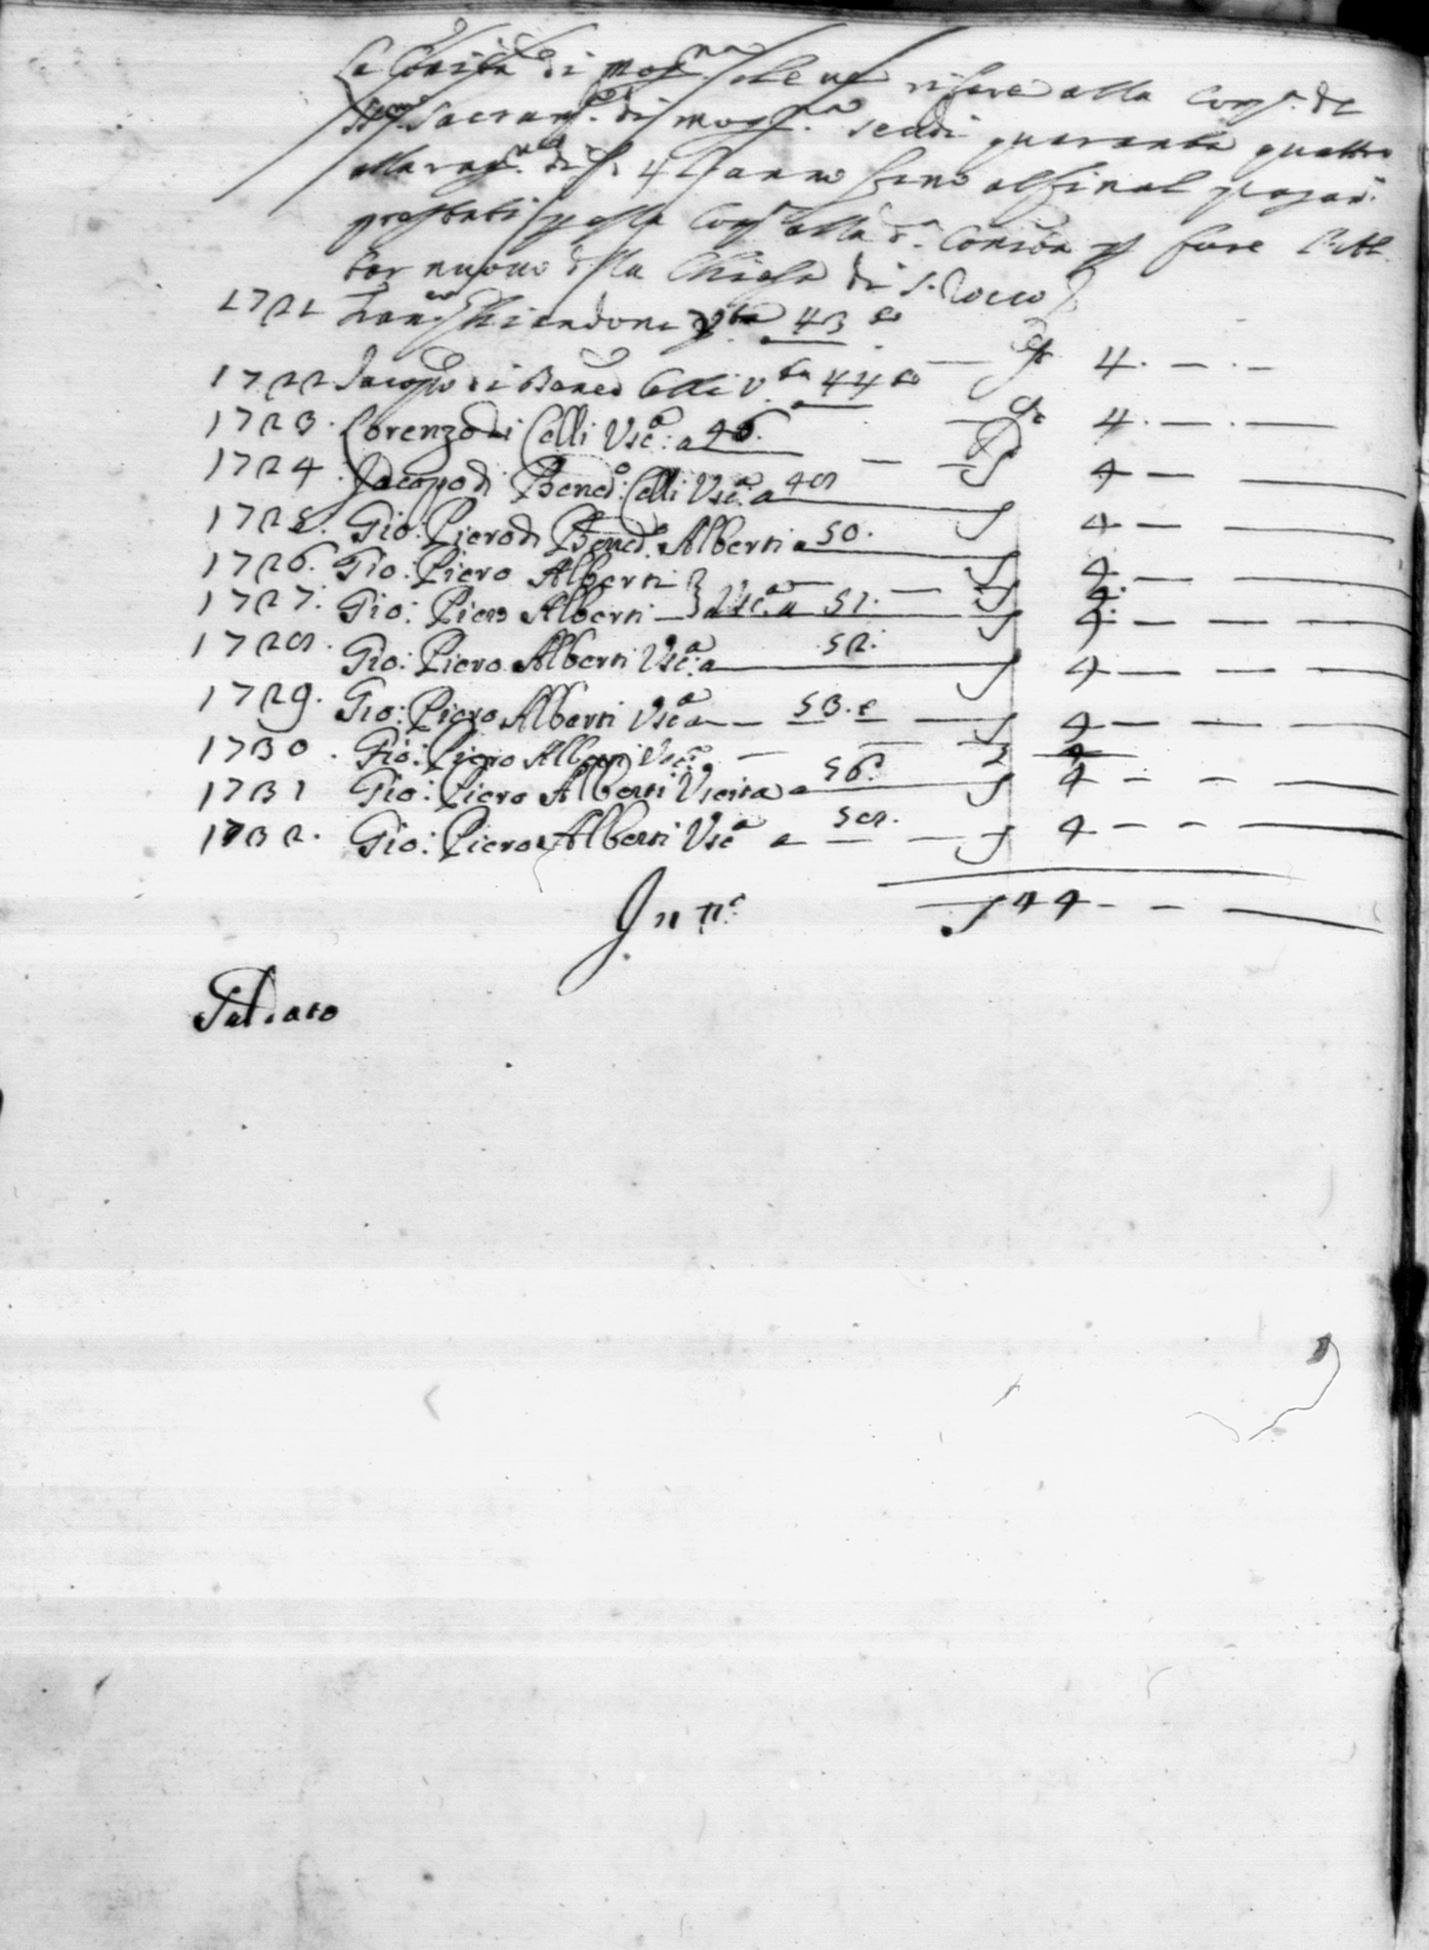 La Comità di Mog.na deve rifare alla Comp.a del
SS.mo Sacram.to di Mog.na scudi quaranta quattro
alla rag.ne di s. 4 l'anno fino al final pagam.
prestati p essa Comp. alla d.a Comità p fare l'Al
tar nuovo della Chiesa di S. Rocco
1721 Franc.o Chiendoni V.ta 43 4. — . —
1722 Jacopo di Bened Celli V.ta 44 — 4. — . —
1723. Lorenzo di Celli Vsc.a: a 46. — — 4 —
1724. Jacopo di Bened.o: Celli Vsc.a a 48 4 — —
1725. Gio: Piero di Bened. Alberti a 50. 4 — —
1726. Gio: Piero Alberti — 4.
1727. Gio: Piero Alberti — } Vsc.a a 51. 4. — — —
1728. Gio: Piero Alberti Vsc.a: a 52. 4 — — —
1729. Gio: Piero Alberti Vsc.a a — 53. e — 4 — — —
1730. Gio: Piero Alberti Vsc.a — — — 4
1731 Gio: Piero Alberti Vscita a 56. 4 — — —
1732. Gio: Piero Alberti Vsc.a a — 58. — 4 — — —
In tt.o — 44 — — —
Saldato